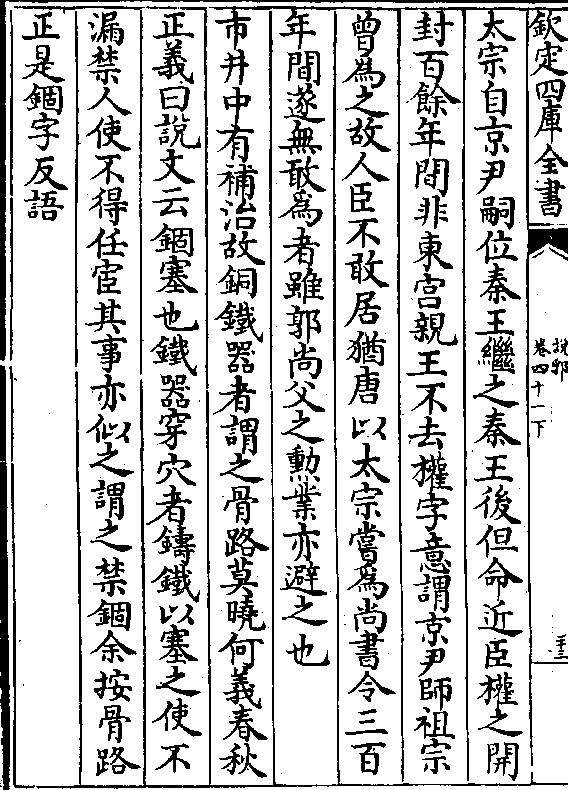 欽定四庫全書
說郛
卷四十一下
太宗自京尹嗣位秦王繼之秦王後但命近臣權之開
封百餘年間非東宮親王不去權字意謂京尹師祖宗
曾為之故人臣不敢居猶唐以太宗嘗為尚書令三百
年間遂無敢為者雖郭尚父之勲業亦避之也
市井中有補治故銅鐵器者謂之骨路莫曉何義春秋
正義曰說文云錮塞也鐵器穿穴者鑄鐵以塞之使不
漏禁人使不得任宦其事亦似之謂之禁錮余按骨路
正是錮字反語